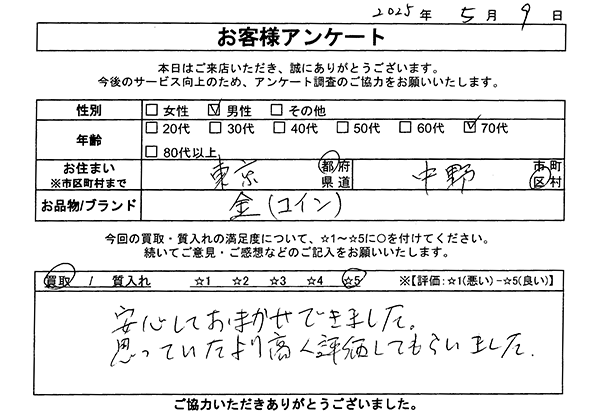 2025年 5月 9日
お客様アンケート
本日はご来店いただき、誠にありがとうございます。
今後のサービス向上のため、アンケート調査のご協力をお願いいたします。
性別 □女性 ☑男性 □その他
年齢 □20代 □30代 □40代 □50代 □60代 ☑70代
□80代以上
お住まい 東京 都府県道 中野 市町区村
※市区町村まで
お品物/ブランド 金(コイン)
今回の買取・質入れの満足度について、☆1～☆5に○を付けてください。
続いてご意見・ご感想などのご記入をお願いいたします。
買取 / 質入れ ☆1 ☆2 ☆3 ☆4 ☆5 ※【評価:☆1(悪い)-☆5(良い)】
安心しておまかせできました。
思っていたより高く評価してもらいました.
ご協力いただきありがとうございました。